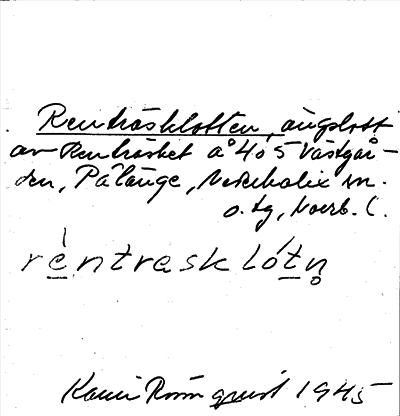 Renträsklotten, ängslott
av Renträsket å 4o 5 Västgår-
den, Pålänge, Nederkalix sn.
o. tg, Norrb. l.
rèntrasklótn̥
Karin Römquist 1945